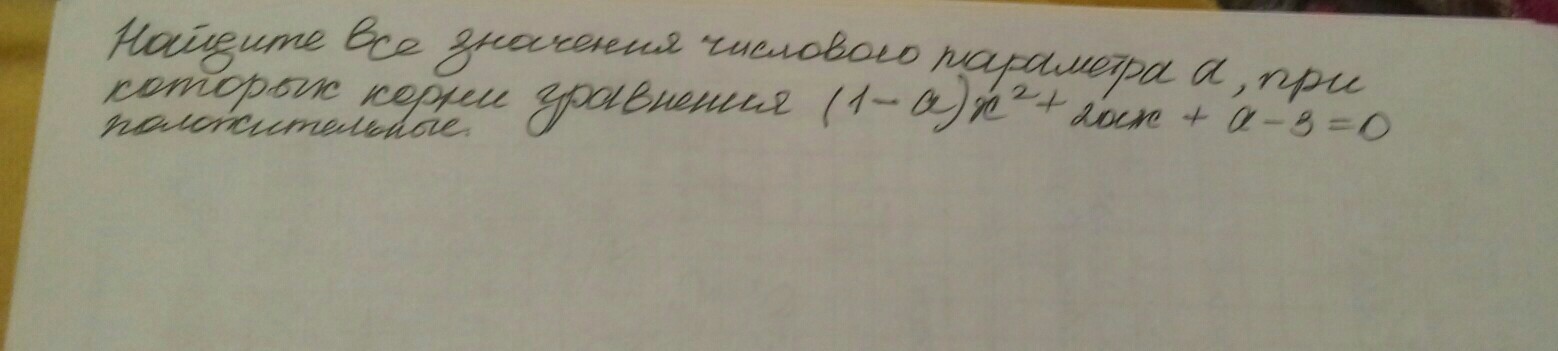 Найдите все значения числового параметра а, при
которых корни уравнения (1-a)x²+ 2ax + a-3=0
положительные.